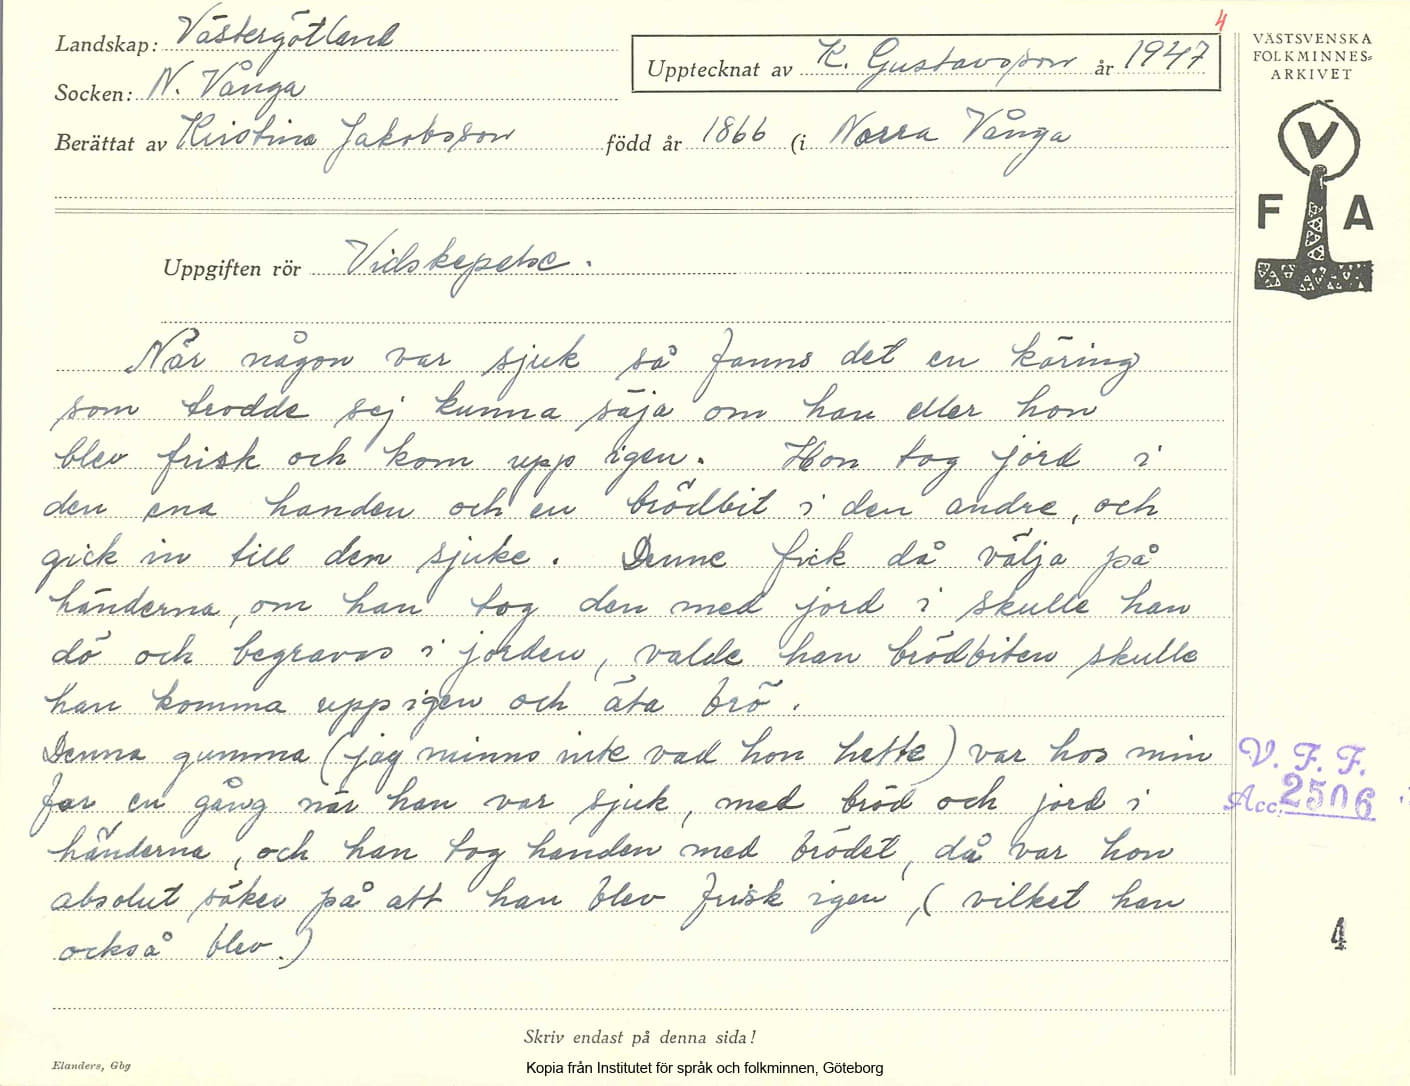 4
Landskap: Västergötland
Socken: N. Vånga
Upptecknat av K. Gustavsson år 1947
Berättat av Kristina Jakobsson född år 1866 (i Norra Vånga
VÄSTSVENSKA
FOLKMINNES=
ARKIVET
V
F A
Uppgiften rör Vidskepelse.
När någon var sjuk så fanns det en käring
som trodde sej kunna säja om han eller hon
blev frisk och kom upp igen. Hon tog jord i
den ena handen och en brödbit i den andre, och
gick in till den sjuke. Denne fick då välja på
händerna, om han tog den med jord i skulle han
dö och begravas i jorden, valde han brödbiten skulle
han komma upp igen och äta brö.
Denna gumma (jag minns inte vad hon hette) var hos min
far en gång när han var sjuk, med bröd och jord i
händerna, och han tog handen med brödet, då var hon
absolut säker på att han blev frisk igen, (vilket han
också blev.)
V. F. F.
Acc. 2506
4
Skriv endast på denna sida!
Elanders, Gbg
Kopia från Institutet för språk och folkminnen, Göteborg